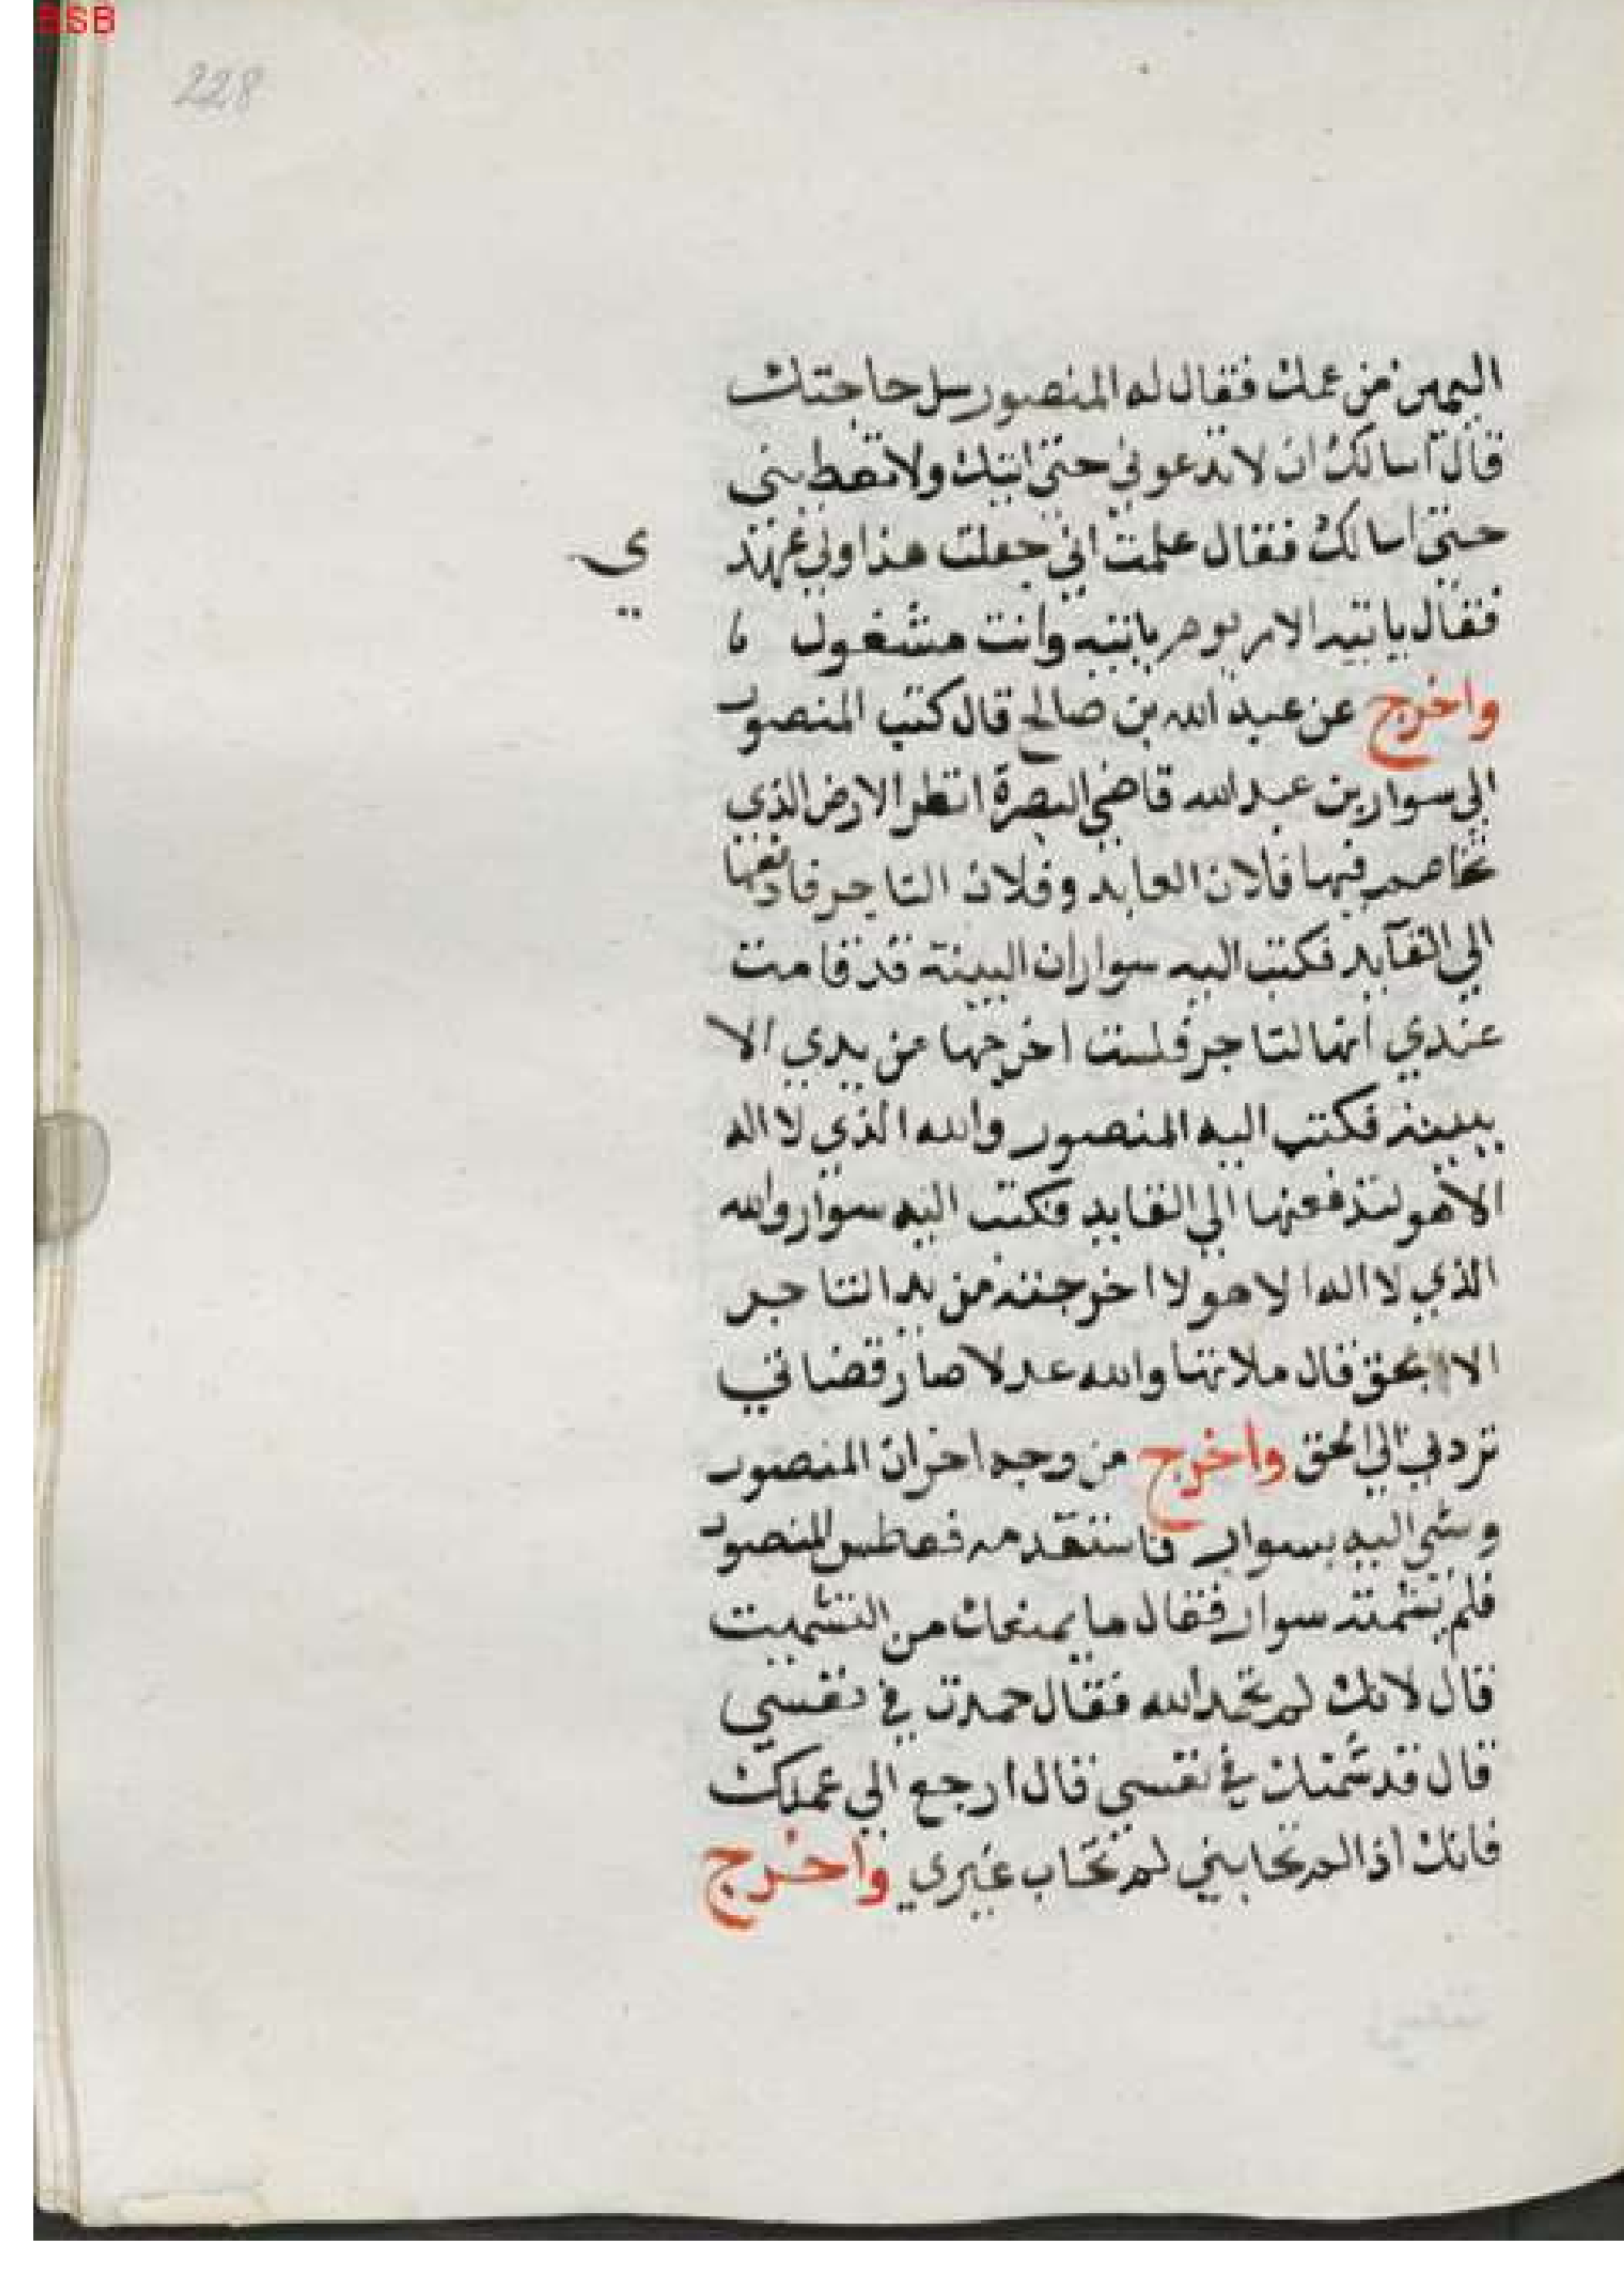 BSB
228
اليمين من عمك فقال له المنصور سل حاجتك
قال اسالك ان لا تدعوني حتى اتيك ولا تعطيني
حتى اسالك فقال علمت اني جعلت هذا ولي عهد
ي
فقال ياتيه الامر يوم ياتيه وانت مشغول
واخرج عن عبد الله بن صالح قال كتب المنصور
الي سوار بن عبد الله قاضي البصرة انظر الارض الذي
تخاصم فيها فلان العابد وفلان التاجر فادفعها
الي القآيد فكتب اليه سوار ان البينة قد قامت
عندي انها لتاجر فلست اخرجها من يدي الا
ببينة فكتب اليه المنصور والله الذي لا اله
الا هو لتدفعنها الي القايد فكتب اليه سوار والله
الذي لا اله الا هو لا اخرجته من يد التاجر
الا بحق قال ملاتها والله عدلا صار قضاتي
تردني الي الحق واخرج من وجه اخر ان المنصور
وشي اليه بسوار فاستقدمه فعطس المنصور
فلم يشمته سوار فقال ما يمنعك من التشميت
قال لانك لم تحمد الله فقال حمدت في نفسي
قال قد شمتك في نفسي قال ارجع الي عملك
فانك اذا لم تحابيني لم تحاب غيري واخرج